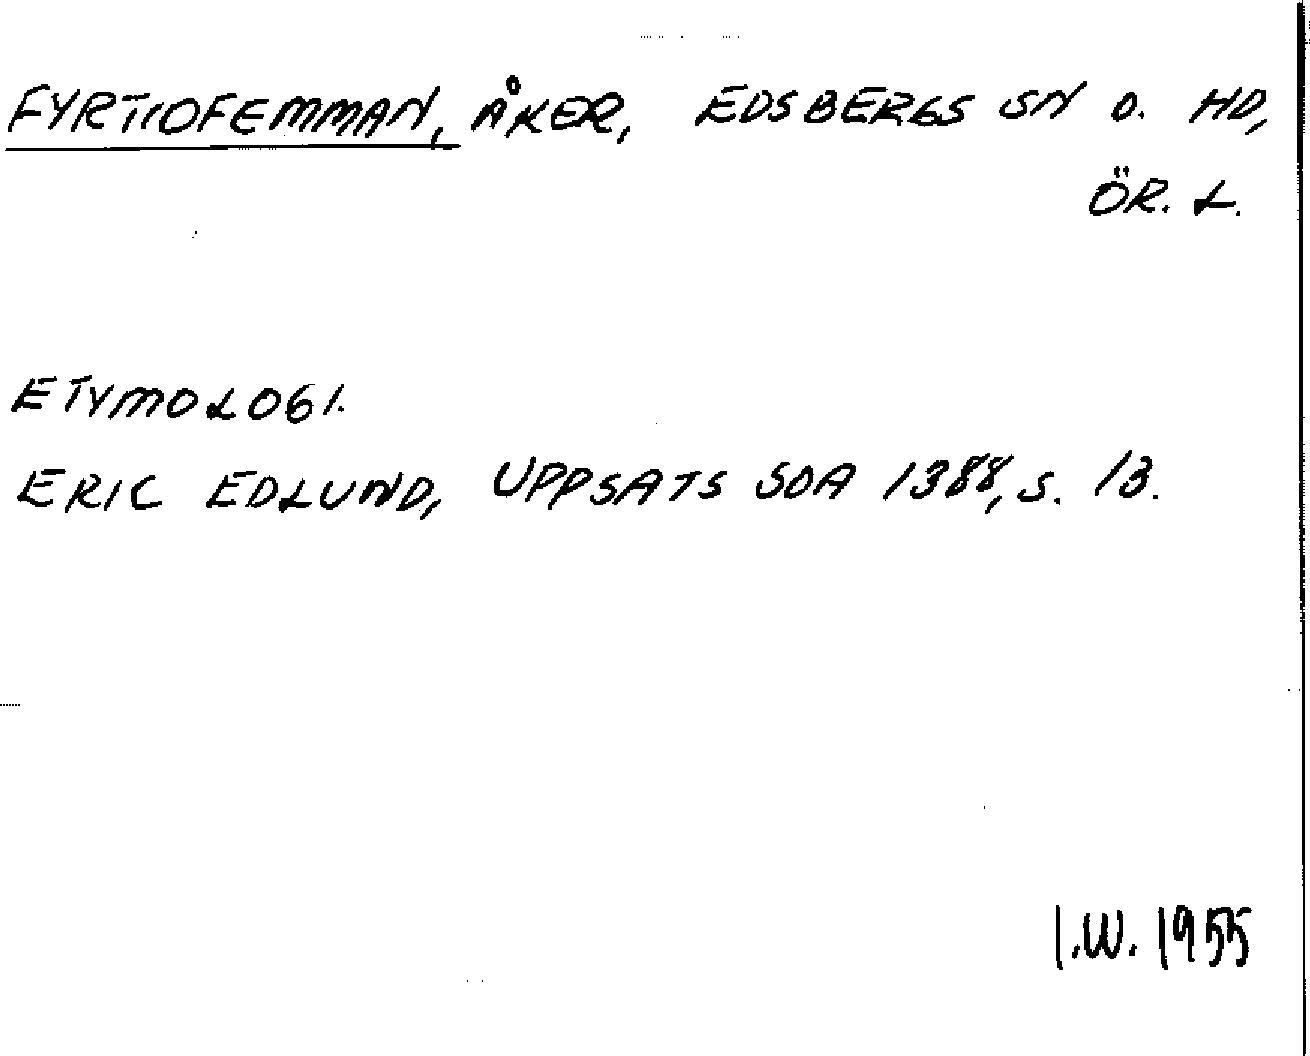 FYRTIOFEMMAN, ÅKER, EDSBERGS SN O. HD,
ÖR. L.
ETYMOLOGI.
ERIC EDLUND, UPPSATS SOA 1388, S. 13.
I.W. 1955